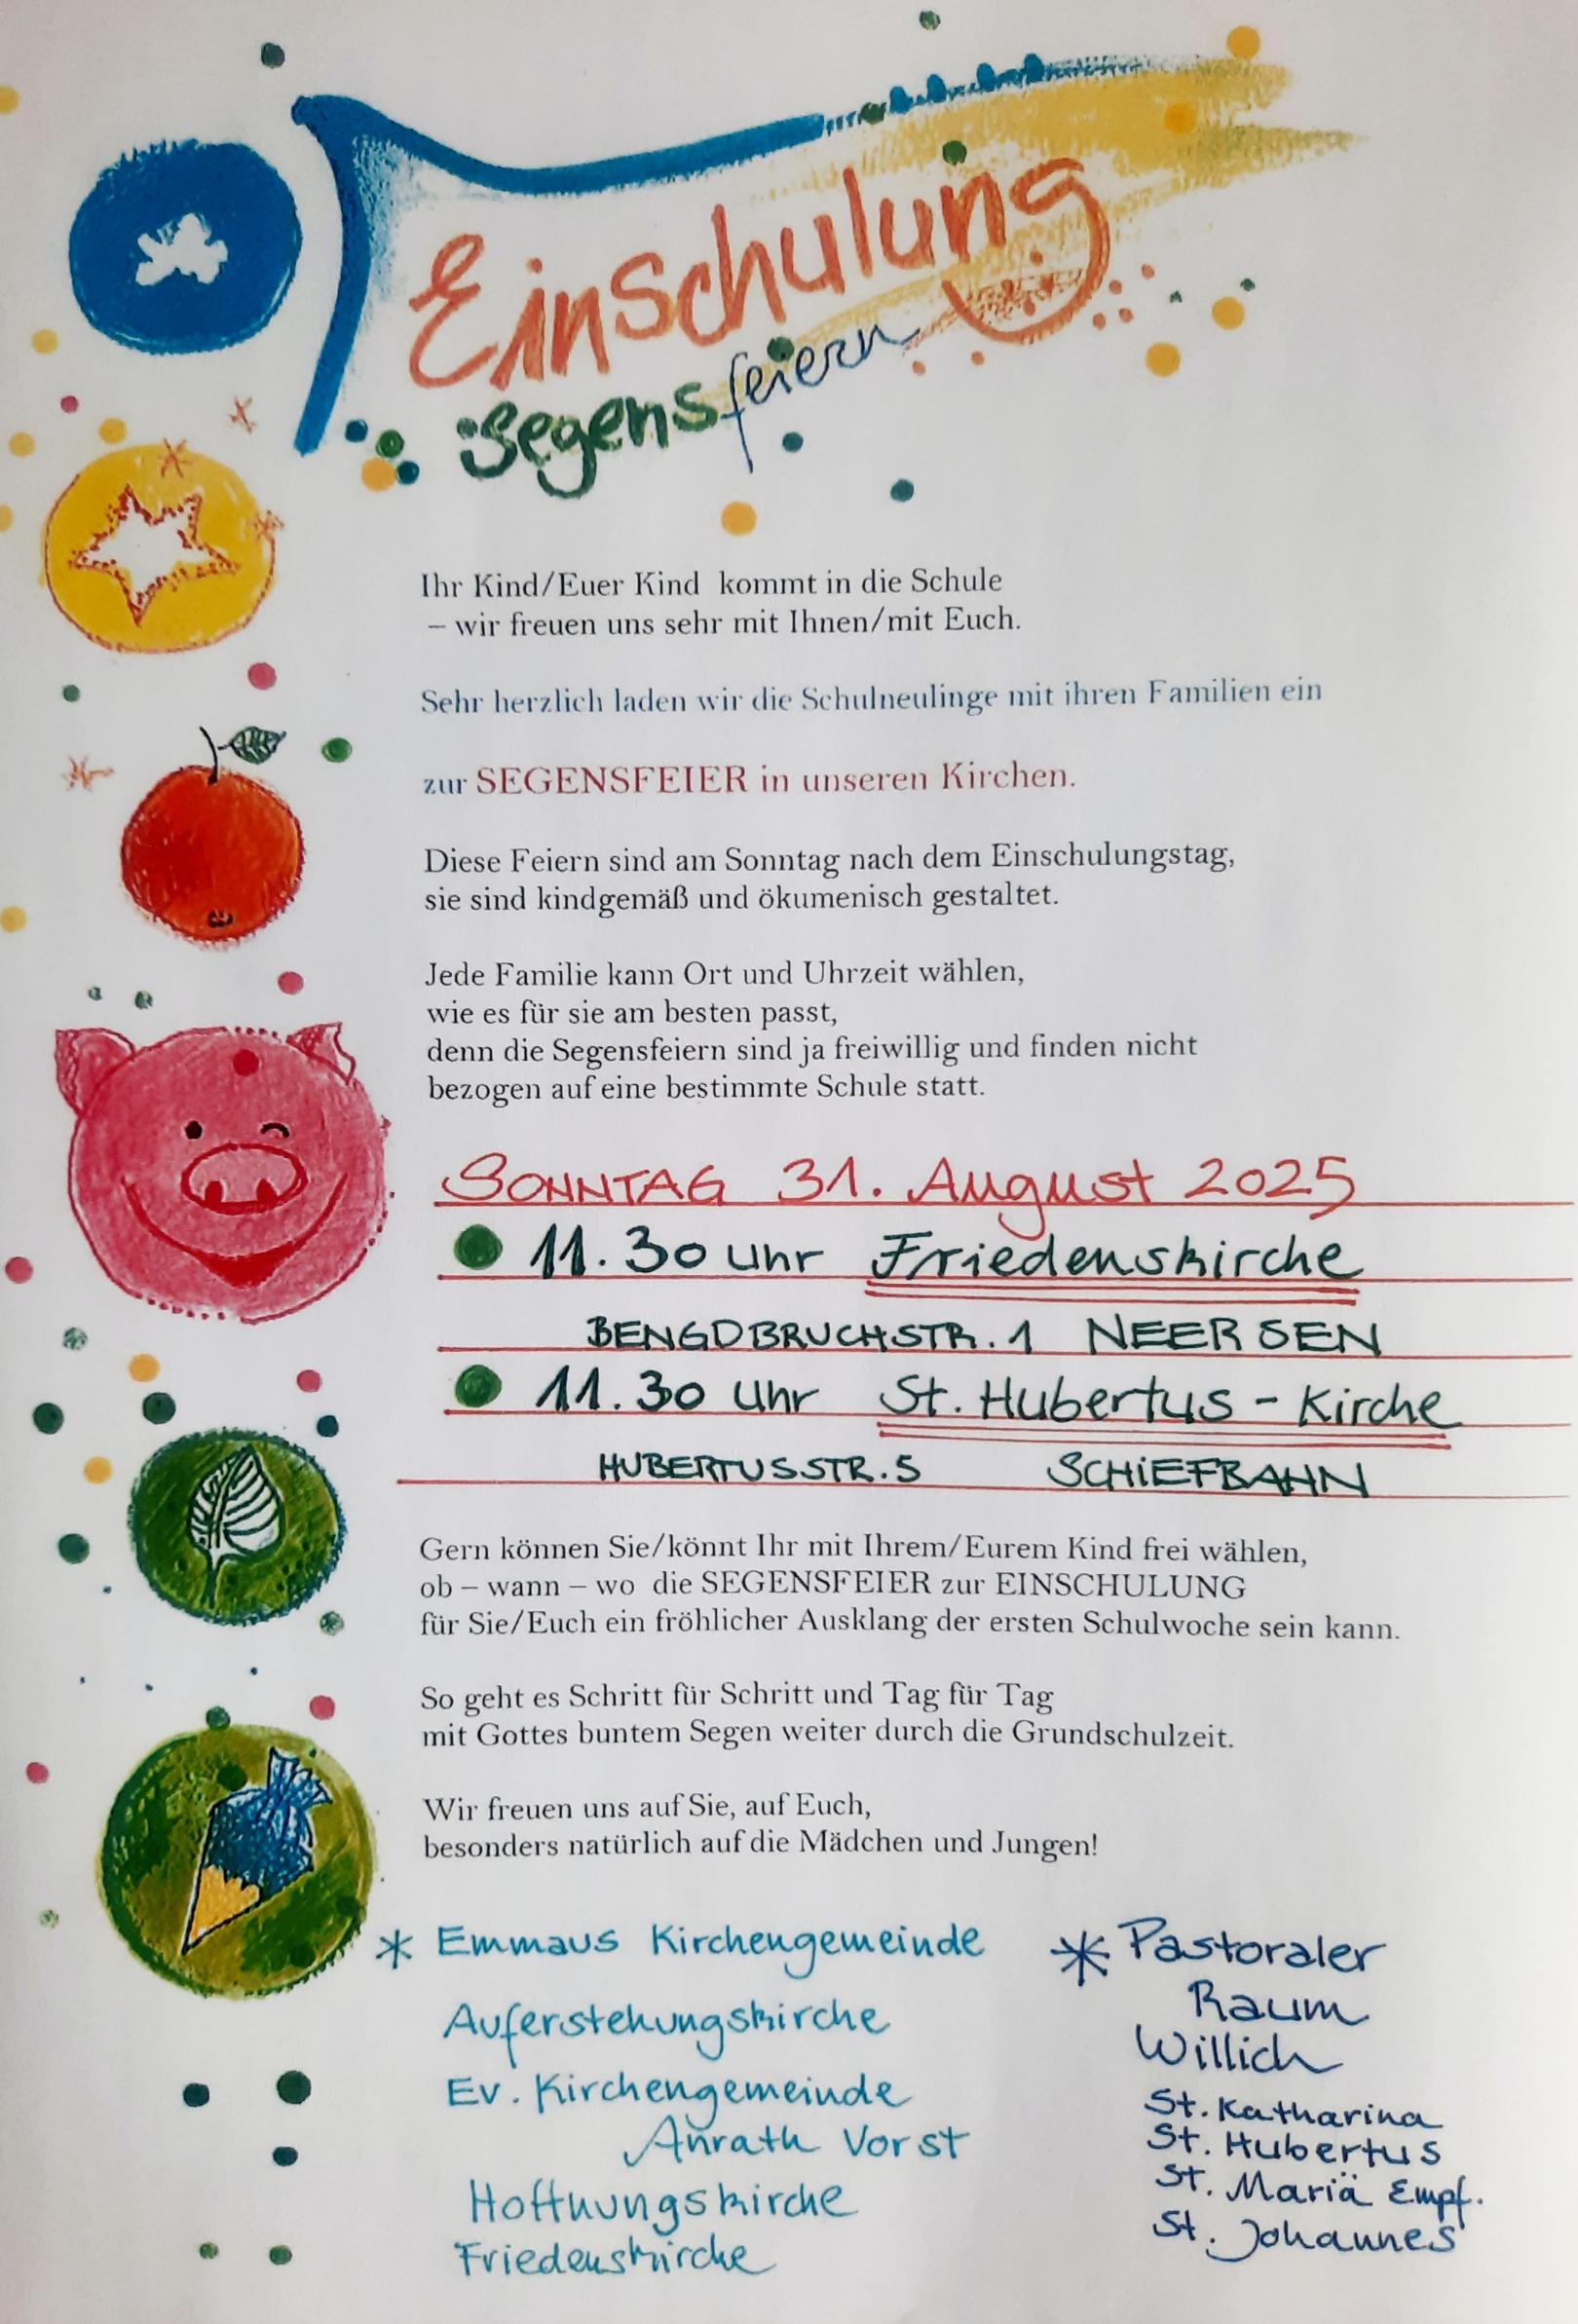 Einschulung
segensfeiern
Ihr Kind/Euer Kind kommt in die Schule
– wir freuen uns sehr mit Ihnen/mit Euch.
Sehr herzlich laden wir die Schulneulinge mit ihren Familien ein
zur SEGENSFEIER in unseren Kirchen.
Diese Feiern sind am Sonntag nach dem Einschulungstag,
sie sind kindgemäß und ökumenisch gestaltet.
Jede Familie kann Ort und Uhrzeit wählen,
wie es für sie am besten passt,
denn die Segensfeiern sind ja freiwillig und finden nicht
bezogen auf eine bestimmte Schule statt.
SONNTAG 31. August 2025
11.30 Uhr Friedenskirche
BENGDBRUCHSTR. 1 NEERSEN
11.30 Uhr St. Hubertus - Kirche
HUBERTUSSTR. 5 SCHIEFBAHN
Gern können Sie/könnt Ihr mit Ihrem/Eurem Kind frei wählen,
ob – wann – wo die SEGENSFEIER zur EINSCHULUNG
für Sie/Euch ein fröhlicher Ausklang der ersten Schulwoche sein kann.
So geht es Schritt für Schritt und Tag für Tag
mit Gottes buntem Segen weiter durch die Grundschulzeit.
Wir freuen uns auf Sie, auf Euch,
besonders natürlich auf die Mädchen und Jungen!
* Emmaus Kirchengemeinde
Auferstehungskirche
Ev. Kirchengemeinde
Anrath Vorst
Hoffnungskirche
Friedenskirche
* Pastoraler
Raum
Willich
St. Katharina
St. Hubertus
St. Mariä Empf.
St. Johannes